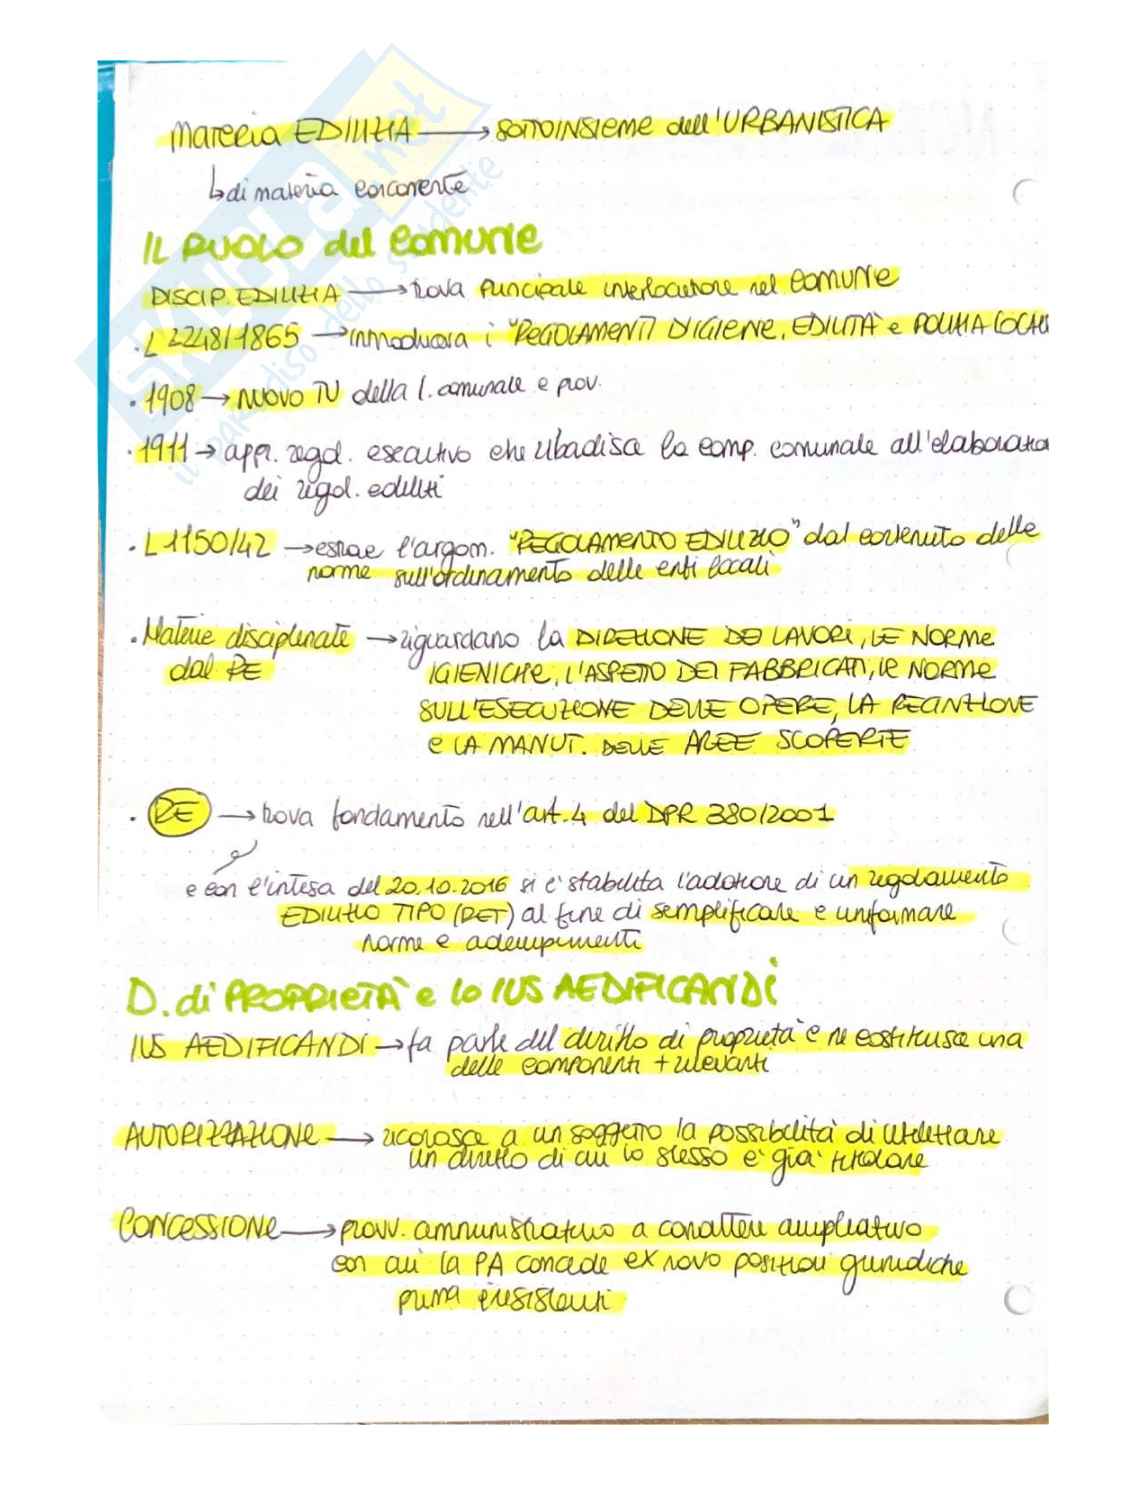 Materia EDILIZIA → SOTTOINSIEME dell'URBANISTICA
↳ di materia concorrente
IL RUOLO del Comune
DISCIP. EDILIZIA → trova principale interlocutore nel Comune
· L 2248/1865 → introduceva i "REGOLAMENTI D'IGIENE, EDILITÀ e POLIZIA LOCALE
· 1908 → NUOVO TU della l. comunale e prov.
· 1911 → appr. regol. esecutivo che ribadisce la comp. comunale all'elaborazion
dei regol. edilizi
· L 1150/42 → estrae l'argom. "REGOLAMENTO EDILIZIO" dal contenuto delle
norme sull'ordinamento delle enti locali
· Materie disciplinate → riguardano la DIREZIONE DEI LAVORI, LE NORME
dal RE IGIENICHE, L'ASPETTO DEI FABBRICATI, LE NORME
SULL'ESECUZIONE DELLE OPERE, LA RECINZIONE
e LA MANUT. DELLE AREE SCOPERTE
· RE → trova fondamento nell'art. 4 del DPR 380/2001
e con l'intesa del 20.10.2016 si è stabilita l'adozione di un regolamento
EDILIZIO TIPO (RET) al fine di semplificare e uniformare
norme e adempimenti
D. di PROPRIETÀ e lo IUS AEDIFICANDI
IUS AEDIFICANDI → fa parte del diritto di proprietà e ne costituisce una
delle componenti + rilevanti
AUTORIZZAZIONE → riconosce a un soggetto la possibilità di utilizzare
un diritto di cui lo stesso è già titolare
CONCESSIONE → provv. amministrativo a carattere ampliativo
con cui la PA concede ex novo posizioni giuridiche
prima inesistenti
SKUOLA.net
il paradiso dello studente